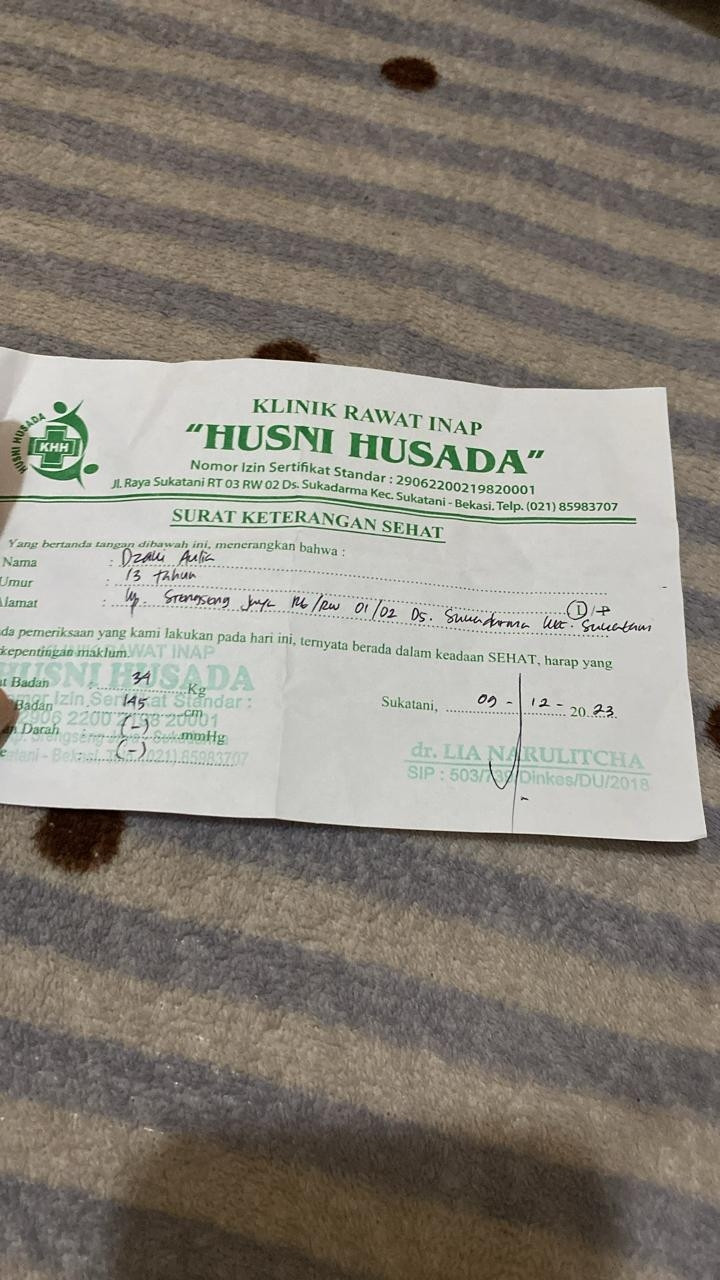 HUSNI HUSADA
KHH
KLINIK RAWAT INAP
"HUSNI HUSADA"
Nomor Izin Sertifikat Standar : 29062200219820001
Jl. Raya Sukatani RT 03 RW 02 Ds. Sukadarma Kec. Sukatani - Bekasi. Telp. (021) 85983707
SURAT KETERANGAN SEHAT
Yang bertanda tangan dibawah ini, menerangkan bahwa :
Nama : Dzaki Aulia
Umur : 13 tahun
Alamat : Kp. Srengseng Jaya Rt/RW 01/02 Ds. Sukadarma Kec. Sukatani
da pemeriksaan yang kami lakukan pada hari ini, ternyata berada dalam keadaan SEHAT, harap yang
kepentingan maklum.
t Badan : 34 Kg
Badan : 145 cm
n Darah : (-) mmHg
(-)
WAT INAP
HUSNI HUSADA
mor Izin Sertifikat Standar :
2906 2200 2198 20001
Sukatani, 09 - 12 - 20 23
dr. LIA NARULITCHA
SIP : 503/739/Dinkes/DU/2018